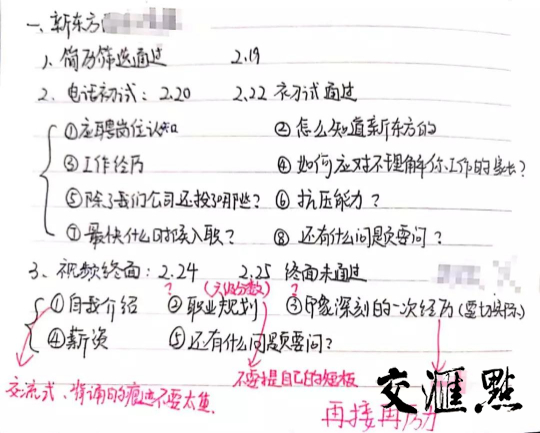 一、新东方
1、简历筛选通过 2.19
2、电话初试：2.20 2.22 初试通过
①应聘岗位认知 ②怎么知道新东方的
③工作经历 ④如何应对不理解你工作的家长？
⑤除了我们公司还投了哪些？ ⑥抗压能力？
⑦最快什么时候入职？ ⑧还有什么问题要问？
3、视频终面：2.24 2.25 终面未通过
? ?
①自我介绍 ②职业规划 ③印象深刻的一次经历（要切实际）
④薪资 ⑤还有什么问题要问？
交流式、背诵的痕迹不要太重
不要提自己的短板
再接再厉
交汇点